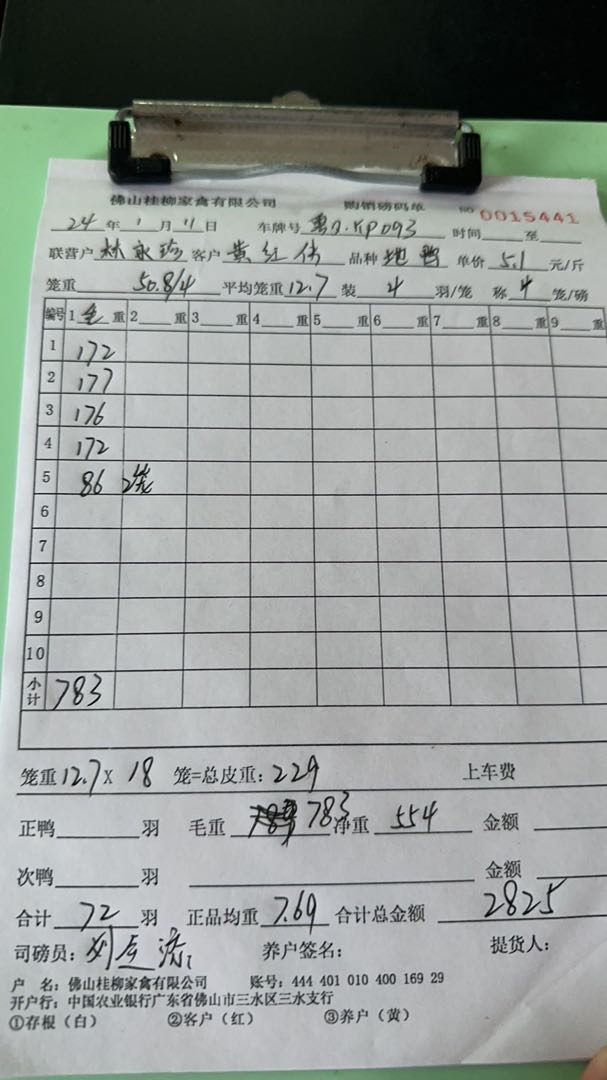 佛山桂柳家禽有限公司 购销磅码单 № 0015441
24 年 1 月 11 日 车牌号 粤 P093 时间 至
联营户 林永 客户 黄红伟 品种 鸭 单价 5.1 元/斤
笼重 50.8/4 平均笼重 12.7 装 4 羽/笼 称 4 笼/磅
编号 1 毛 重 2 重 3 重 4 重 5 重 6 重 7 重 8 重 9 重
1 172
2 177
3 176
4 172
5 86 2笼
6
7
8
9
10
小计 783
笼重 12.7 X 18 笼=总皮重: 229 上车费
正鸭 羽 毛重 783 净重 554 金额
次鸭 羽 金额
合计 72 羽 正品均重 7.69 合计总金额 2825
司磅员: 刘 养户签名: 提货人:
户 名: 佛山桂柳家禽有限公司 账号: 444 401 010 400 169 29
开户行: 中国农业银行广东省佛山市三水区三水支行
①存根（白） ②客户（红） ③养户（黄）